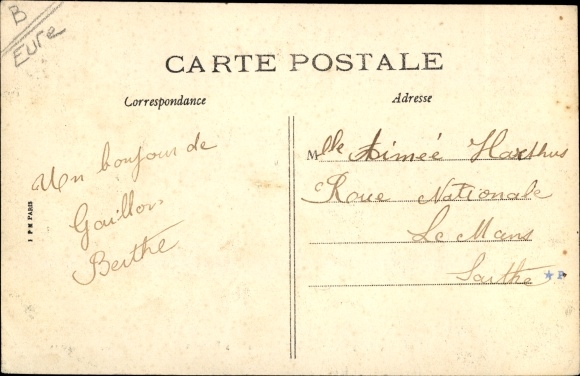 B
Eure
CARTE POSTALE
Correspondance
Adresse
Un bonjour de
Gaillon
Berthe
Mlle Aimée
Roue Nationale
Le Mans
Sarthe